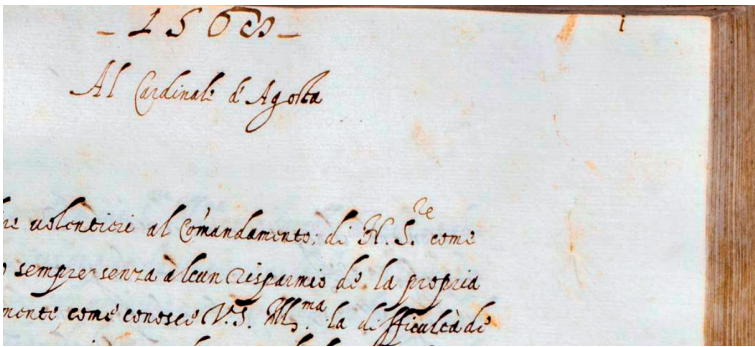 1568
1
Al Cardinale d'Agosta
re volentieri al Comandamento di N. S.re come
o sempre senza alcun risparmio de la propria
mente come conosce V.S. Ill.ma la difficultà de